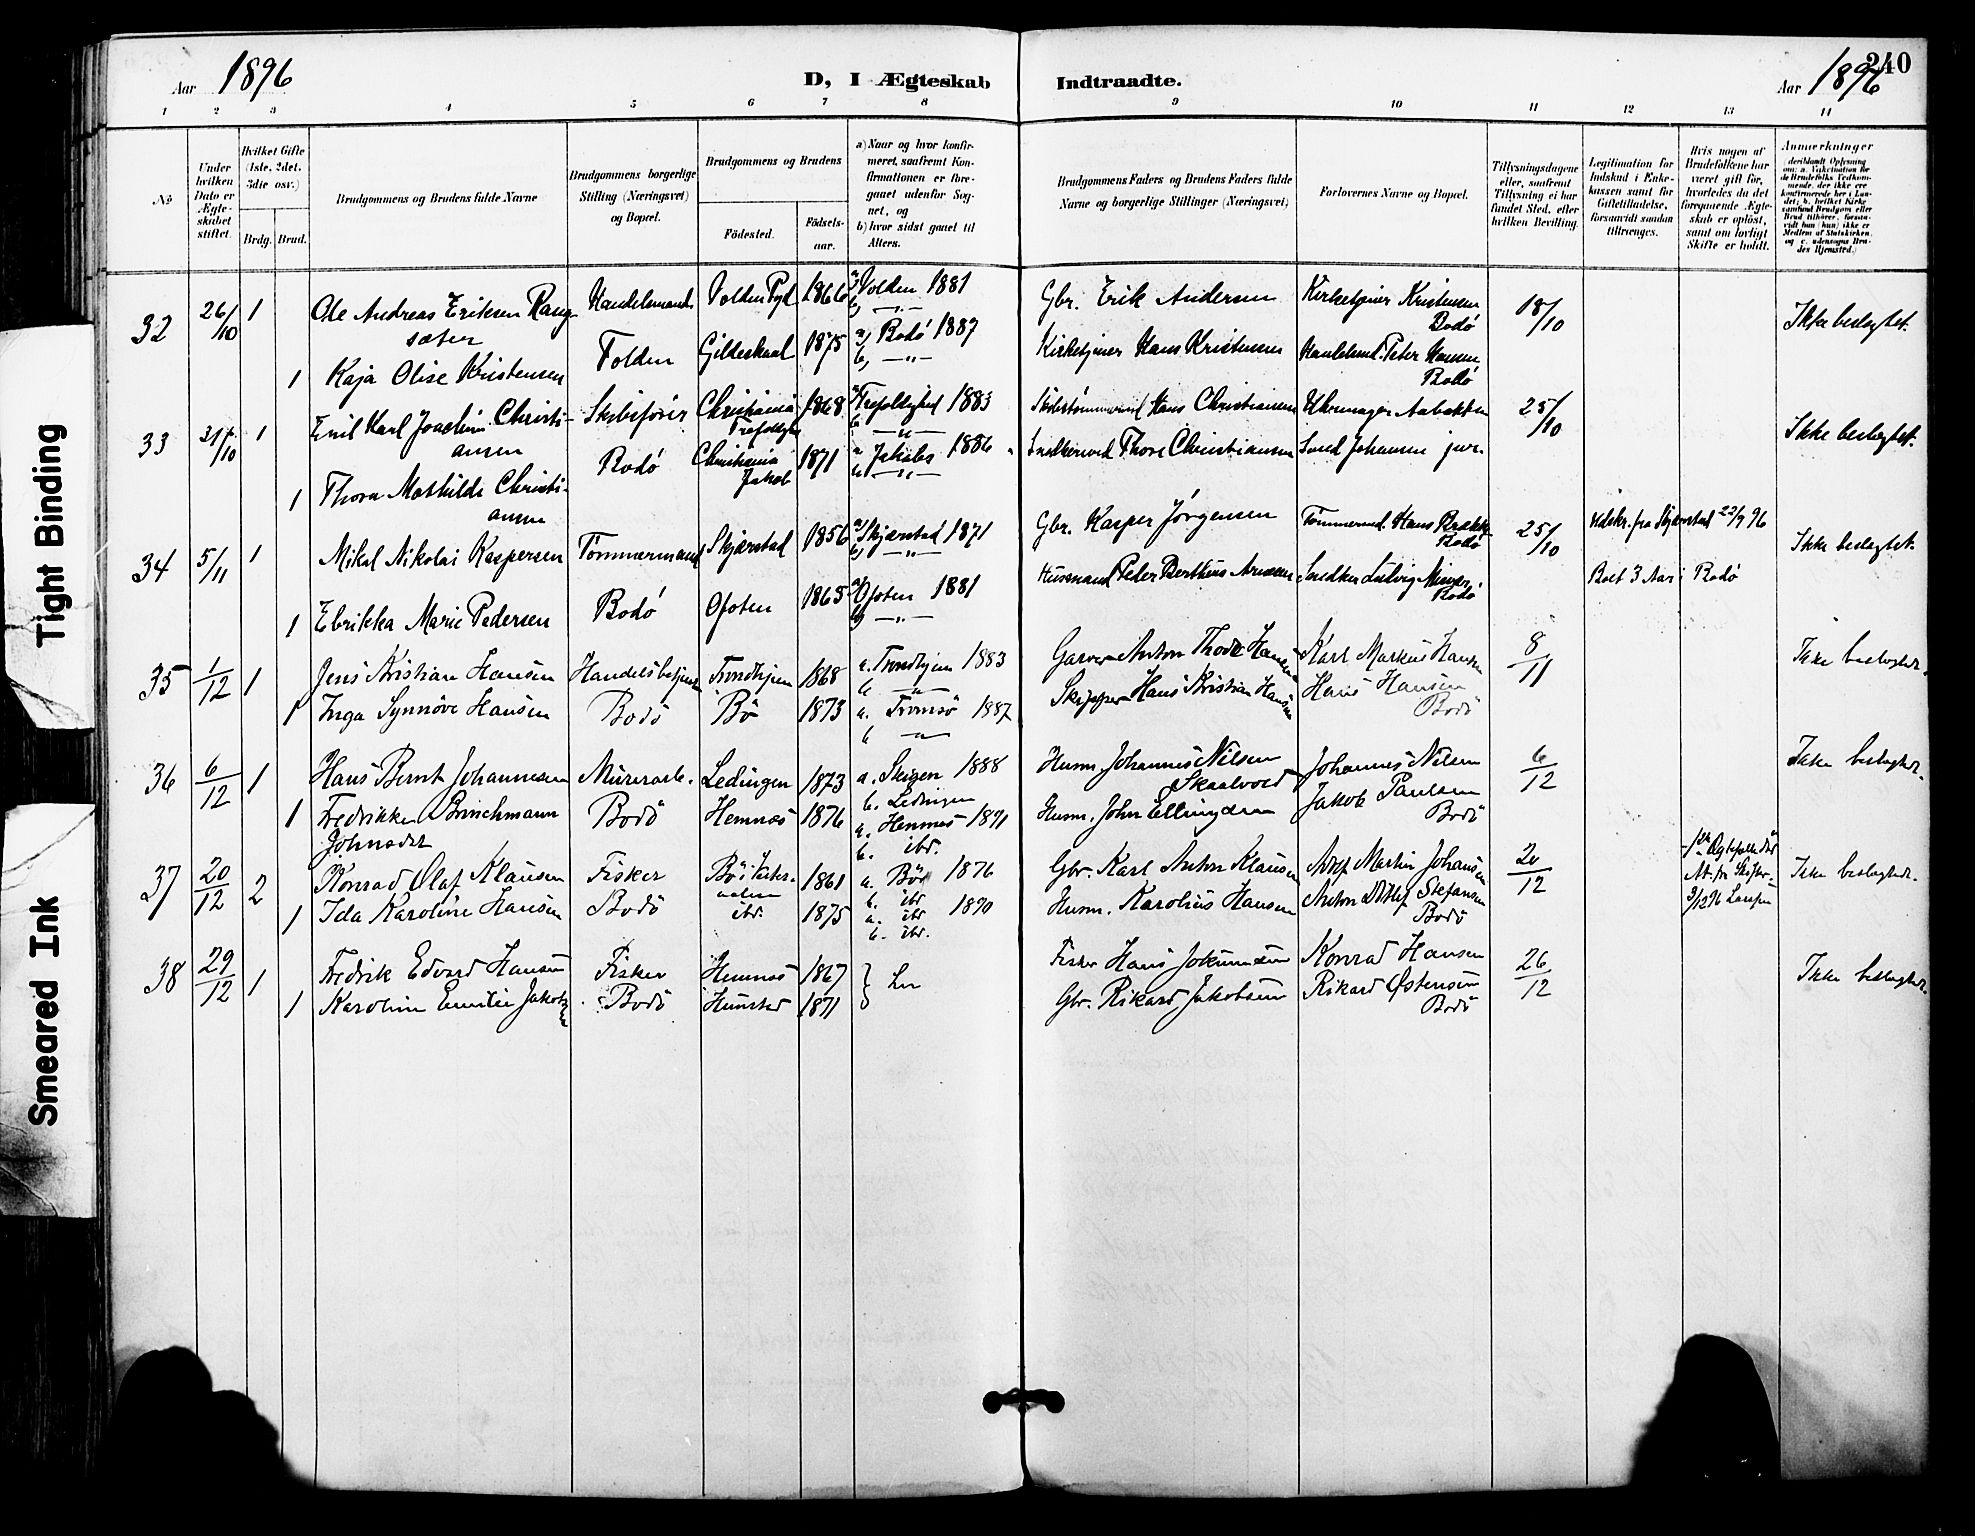 Tight Binding
Smeared Ink
Aar 1896
D, I Ægteskab
Indtraadte.
Aar 1896
240
1 2 3 4 5 6 7 8 9 10 11 12 13 14
No
Under hvilken Dato er Ægteskabet stiftet.
Hvilket Gifte (1ste, 2det, 3die osv.)
Brdg. Brud.
Brudgommens og Brudens fulde Navne
Brudgommens borgerlige Stilling (Næringsvei) og Bopæl.
Brudgommens og Brudens
Födested.
Födselsaar.
a) Naar og hvor konfirmeret, saafremt Konfirmationen er foregaaet udenfor Sognet, og
b) hvor sidst gaaet til Alters.
Brudgommens Faders og Brudens Faders fulde Navne og borgerlige Stillinger (Næringsvei)
Forlovernes Navne og Bopæl.
Tillysningsdagene eller, saafremt Tillysning ei har fundet Sted, efter hvilken Bevilling.
Legitimation for Indskud i Enkekassen samt for Giftetilladelse, forsaavidt saadan tiltrænges.
Hvis nogen af Brudefolkene har været gift før, hvorledes da det foregaaende Ægteskab er opløst, samt om lovligt Skifte er holdt.
Anmerkninger
32 26/10 1 Ole Andreas Eriksen Rangsæter Handelsmand Folden 1866 a, Folden 1881 b, —"— Gbr. Erik Andersen Kirketjener Kristensen Bodö 18/10 Ikke beslegtet.
1 Kaja Olise Kristensen Folden Gildeskaal 1875 a, Bodö 1887 b, —"— Kirketjener Hans Kristensen Peter Hansen Bodö
33 31/10 1 Emil Karl Joachim Christiansen Skibsfører Christiania Trefoldighed 1868 a Trefoldighed 1883 b —"— Hans Christiansen Uhrmager 25/10 Ikke beslegtet.
1 Thora Mathilde Christiansen Bodö Christiania Jakob 1871 a Jakobs 1886 b —"— Thore Christiansen Johansen jur.
34 5/11 1 Mikal Nikolai Kaspersen Tømmermand Skjærstad 1856 a, Skjærstad 1871 b, —"— Gbr. Kasper Jörgensen Tømmermd. Hans Bodö 25/10 Udskr. fra Skjærstad 22/9 96 Ikke beslegtet.
1 Ebrikka Marie Pedersen Bodö Ofoten 1865 a, Ofoten 1881 b, —"— Husmand Peter Berthus Snedker Ludvig Bodö Boet 3 Aar i Bodö
35 1/12 1 Jens Kristian Hansen Handelsbetjent Trondhjem 1868 a. Trondhjem 1883 b —"— Garver Anton Thode Hansen Karl Markus Hansen 8/11 Ikke beslegtet.
1 Inga Synnöve Hansen Bodö Bö 1873 a. Tromsö 1887 b —"— Skipper Hans Kristian Hansen Hans Hansen Bodö
36 6/12 1 Hans Bernt Johannesen Murerarb. Lödingen 1873 a. Skjgen 1888 b. Lødingen Husm. Johannes Nilsen Skaalvold Johannes Nilsen 6/12 Ikke beslegtet.
1 Fredrikke Brinchmann Johnsdtr Bodö Hemnæs 1876 a. Hemnes 1891 b. ibr. Husm. John Ellingsen Jakob Paulsen Bodö
37 20/12 2 Konrad Olaf Klausen Fisker Bö i Vesteraalen 1861 a. Bö 1876 b. ibr Gbr. Karl Anton Klausen Adolf Martin Johansen 20/12 Ikke beslegtet.
1 Ida Karoline Hansen Bodö ibr. 1875 a. ibr 1890 b. ibr. Husm. Karolius Hansen Anton Ditlef Stefansen Bodö
38 29/12 1 Fredrik Edvard Hansen Fisker Hemnæs 1867 Gbr Fisker Hans Konrad Hansen 26/12 Ikke beslegtet.
1 Karoline Emilie Jakobsen Bodö Hunstad 1871 Gbr. Rikard Jakobsen Rikard Østensen Bodö